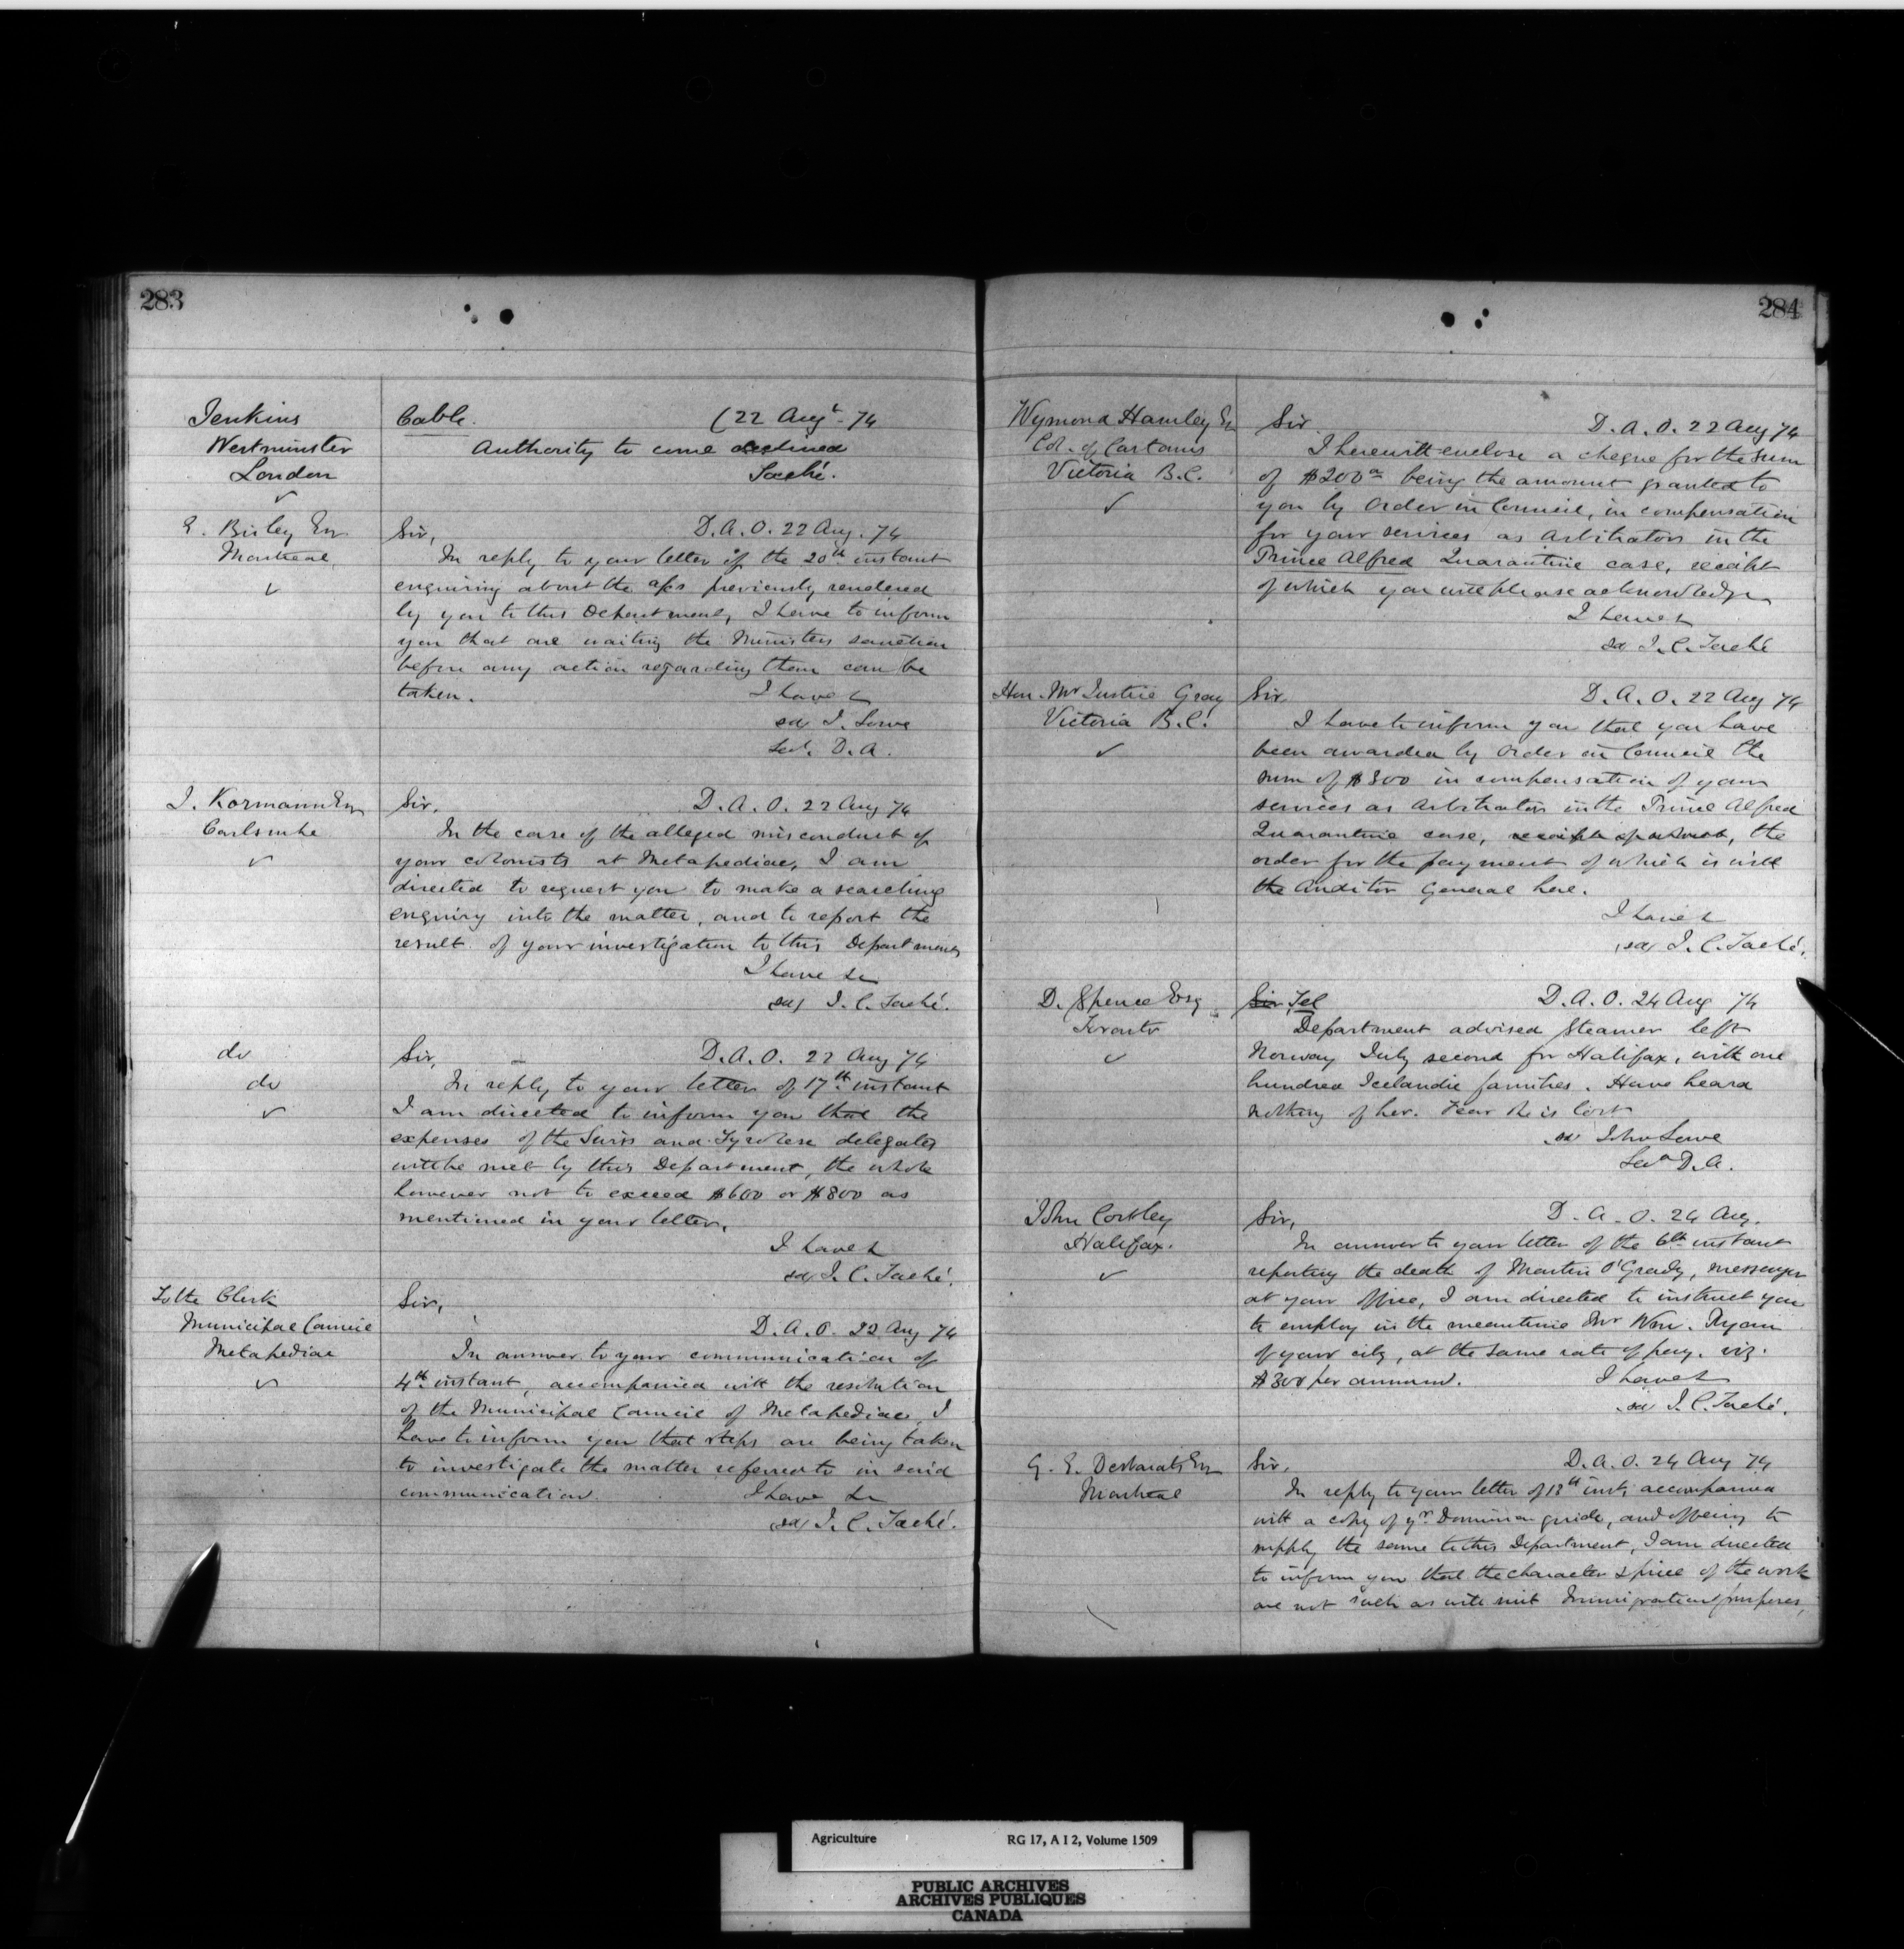 283
Jenkins
Westminster
London
Cable. (22 Augt. 74
Authority to come declined
Taché.
E. Bisley Esq
Montreal
Sir, D.A.O. 22 Aug. 74
In reply to your letter of the 20th instant
enquiring about the a/cs previously rendered
by you to this Department, I have to inform
you that are waiting the Ministers sanction
before any action regarding them can be
taken. I have &
sd J. Lowe
Secy. D.A.
J. Kormann Esq
Carlsruhe
Sir, D.A.O. 22 Aug 74
In the case of the alleged misconduct of
your colonists at Metapediac, I am
directed to request you to make a searching
enquiry into the matter, and to report the
result of your investigation to this Department
I have &c
sd J.C. Taché.
do
do
Sir, D.A.O. 22 Aug 74
In reply to your letter of 17th instant
I am directed to inform you that the
expenses of the Swiss and Tyrolese delegates
will be met by this Department, the whole
however not to exceed $600 or $800 as
mentioned in your letter.
I have &
sd J.C. Taché.
To the Clerk
Municipal Council
Metapediac
Sir,
D.A.O. 22 Aug 74
In answer to your communication of
4th instant, accompanied with the resolution
of the Municipal Council of Metapediac, I
have to inform you that steps are being taken
to investigate the matter referred to in said
communication. I have &c
sd J.C. Taché.
284
Wymond Hamley Esq
Col. of Customs
Victoria B.C.
Sir D.A.O. 22 Aug 74
I herewith enclose a cheque for the sum
of $200 being the amount granted to
you by Order in Council, in compensation
for your services as Arbitrators in the
Prince Alfred Quarantine case, receipt
of which you will please acknowledge
I have &
sd J.C. Taché
Hon. Mr Justice Gray
Victoria B.C.
Sir D.A.O. 22 Aug 74
I have to inform you that you have
been awarded by Order in Council the
sum of $300 in compensation of your
services as Arbitrators in the Prince Alfred
Quarantine case, receipt of which, the
order for the payment of which is with
the Auditor General here.
I have &
sd J.C. Taché.
D. Spence Esq
Toronto
Sir Tel D.A.O. 24 Aug 74
Department advised steamer left
Norway July second for Halifax, with one
hundred Icelandic families. Have heard
nothing of her. Fear she is lost
sd John Lowe
Secy D.A.
John Corbley
Halifax.
Sir, D.A.O. 24 Aug.
In answer to your letter of the 6th instant
reporting the death of Martin O'Grady, messenger
at your office, I am directed to instruct you
to employ in the meantime Mr Wm. Ryan
of your city, at the same rate of pay. viz.
$300 per annum. I have &
sd J.C. Taché.
G. E. Desbarats Esq
Montreal
Sir, D.A.O. 24 Aug 74
In reply to your letter of 18th inst, accompanied
with a copy of yr Dominion guide, and offering to
supply the same to this Department, I am directed
to inform you that the character & price of the work
are not such as will suit Immigration purposes,
Agriculture RG 17, A I 2, Volume 1509
PUBLIC ARCHIVES
ARCHIVES PUBLIQUES
CANADA